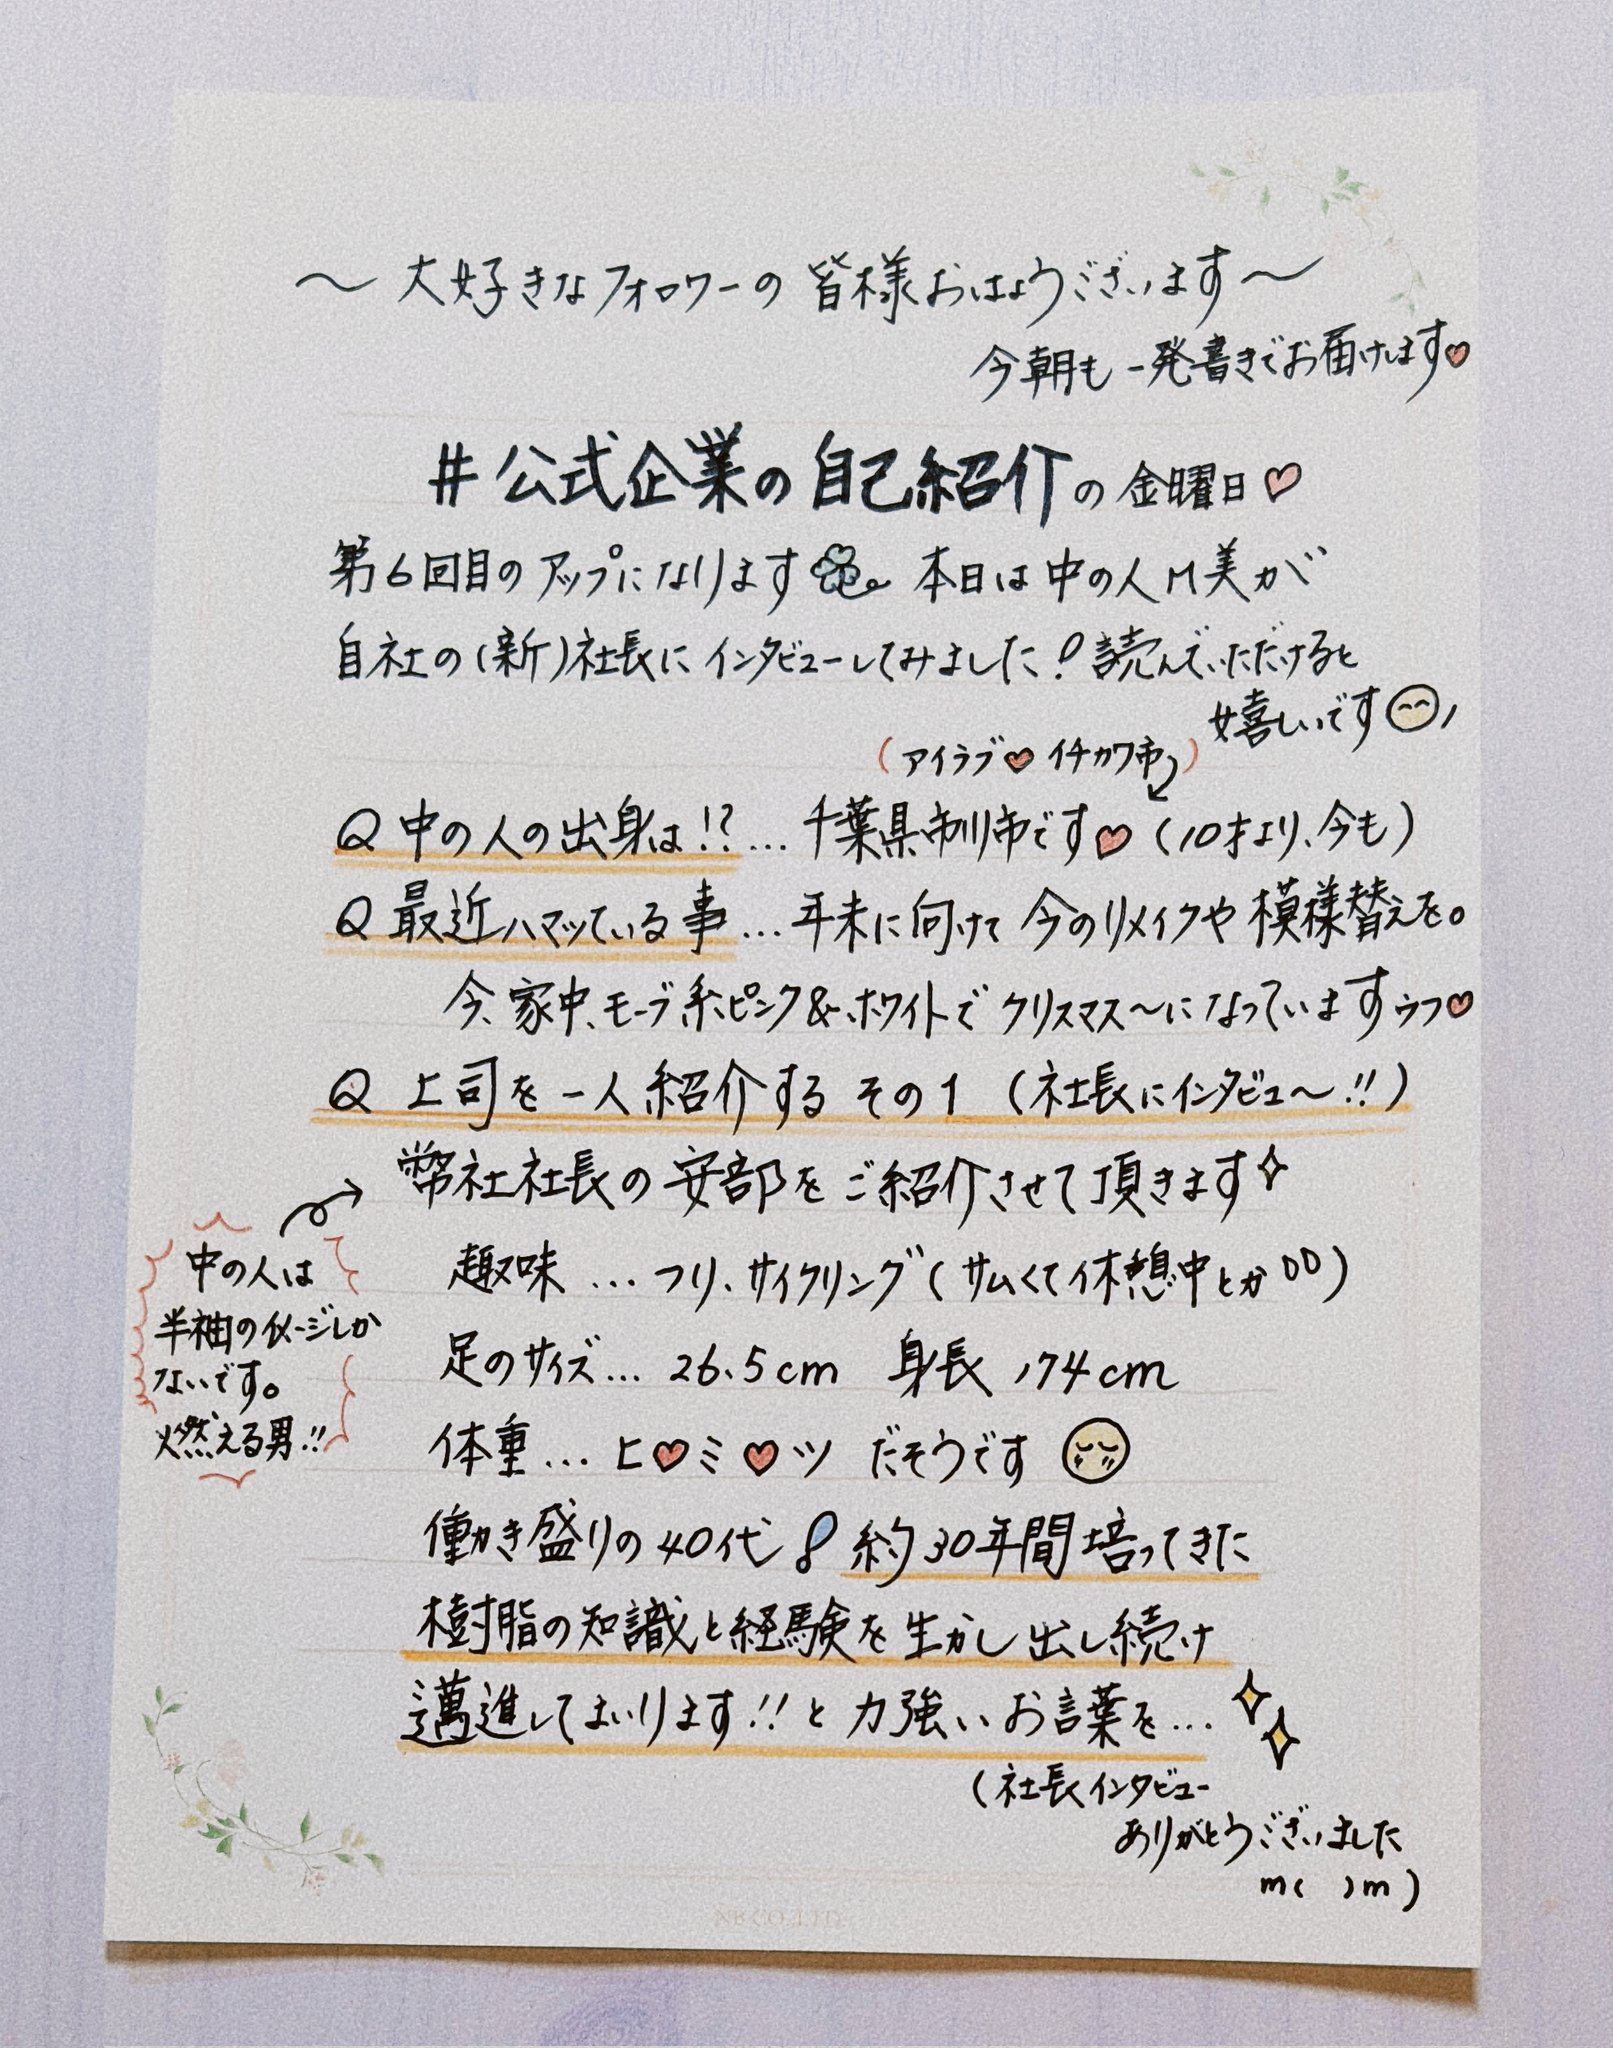 〜大好きなフォロワーの皆様おはようございます〜
今朝も一発書きでお届けします♡
#公式企業の自己紹介の金曜日♡
第6回目のアップになります🍀 本日は中の人M美が
自社の(新)社長にインタビューしてみました!読んでいただけると
嬉しいです😊
(アイラブ♡イチカワ市)
Q 中の人の出身は!?…千葉県市川市です♡(10才より、今も)
Q 最近ハマッている事…年末に向けて今のリメイクや模様替えを。
今、家中、モーブ系ピンク&ホワイトでクリスマス〜になっていますゥフ♡
Q 上司を一人紹介する その1 (社長にインタビュ〜!!)
弊社社長の安部をご紹介させて頂きます✧
中の人は
半袖のイメージしか
ないです。
燃える男!!
趣味…つり、サイクリング(サムくて休憩中とか00)
足のサイズ…26.5cm 身長 174cm
体重…ヒ♡ミ♡ツ だそうです
働き盛りの40代 約30年間培ってきた
樹脂の知識と経験を生かし出し続け
邁進してまいります!!と力強いお言葉を…
(社長インタビュー
ありがとうございました
m( )m)
NB CO.,LTD.